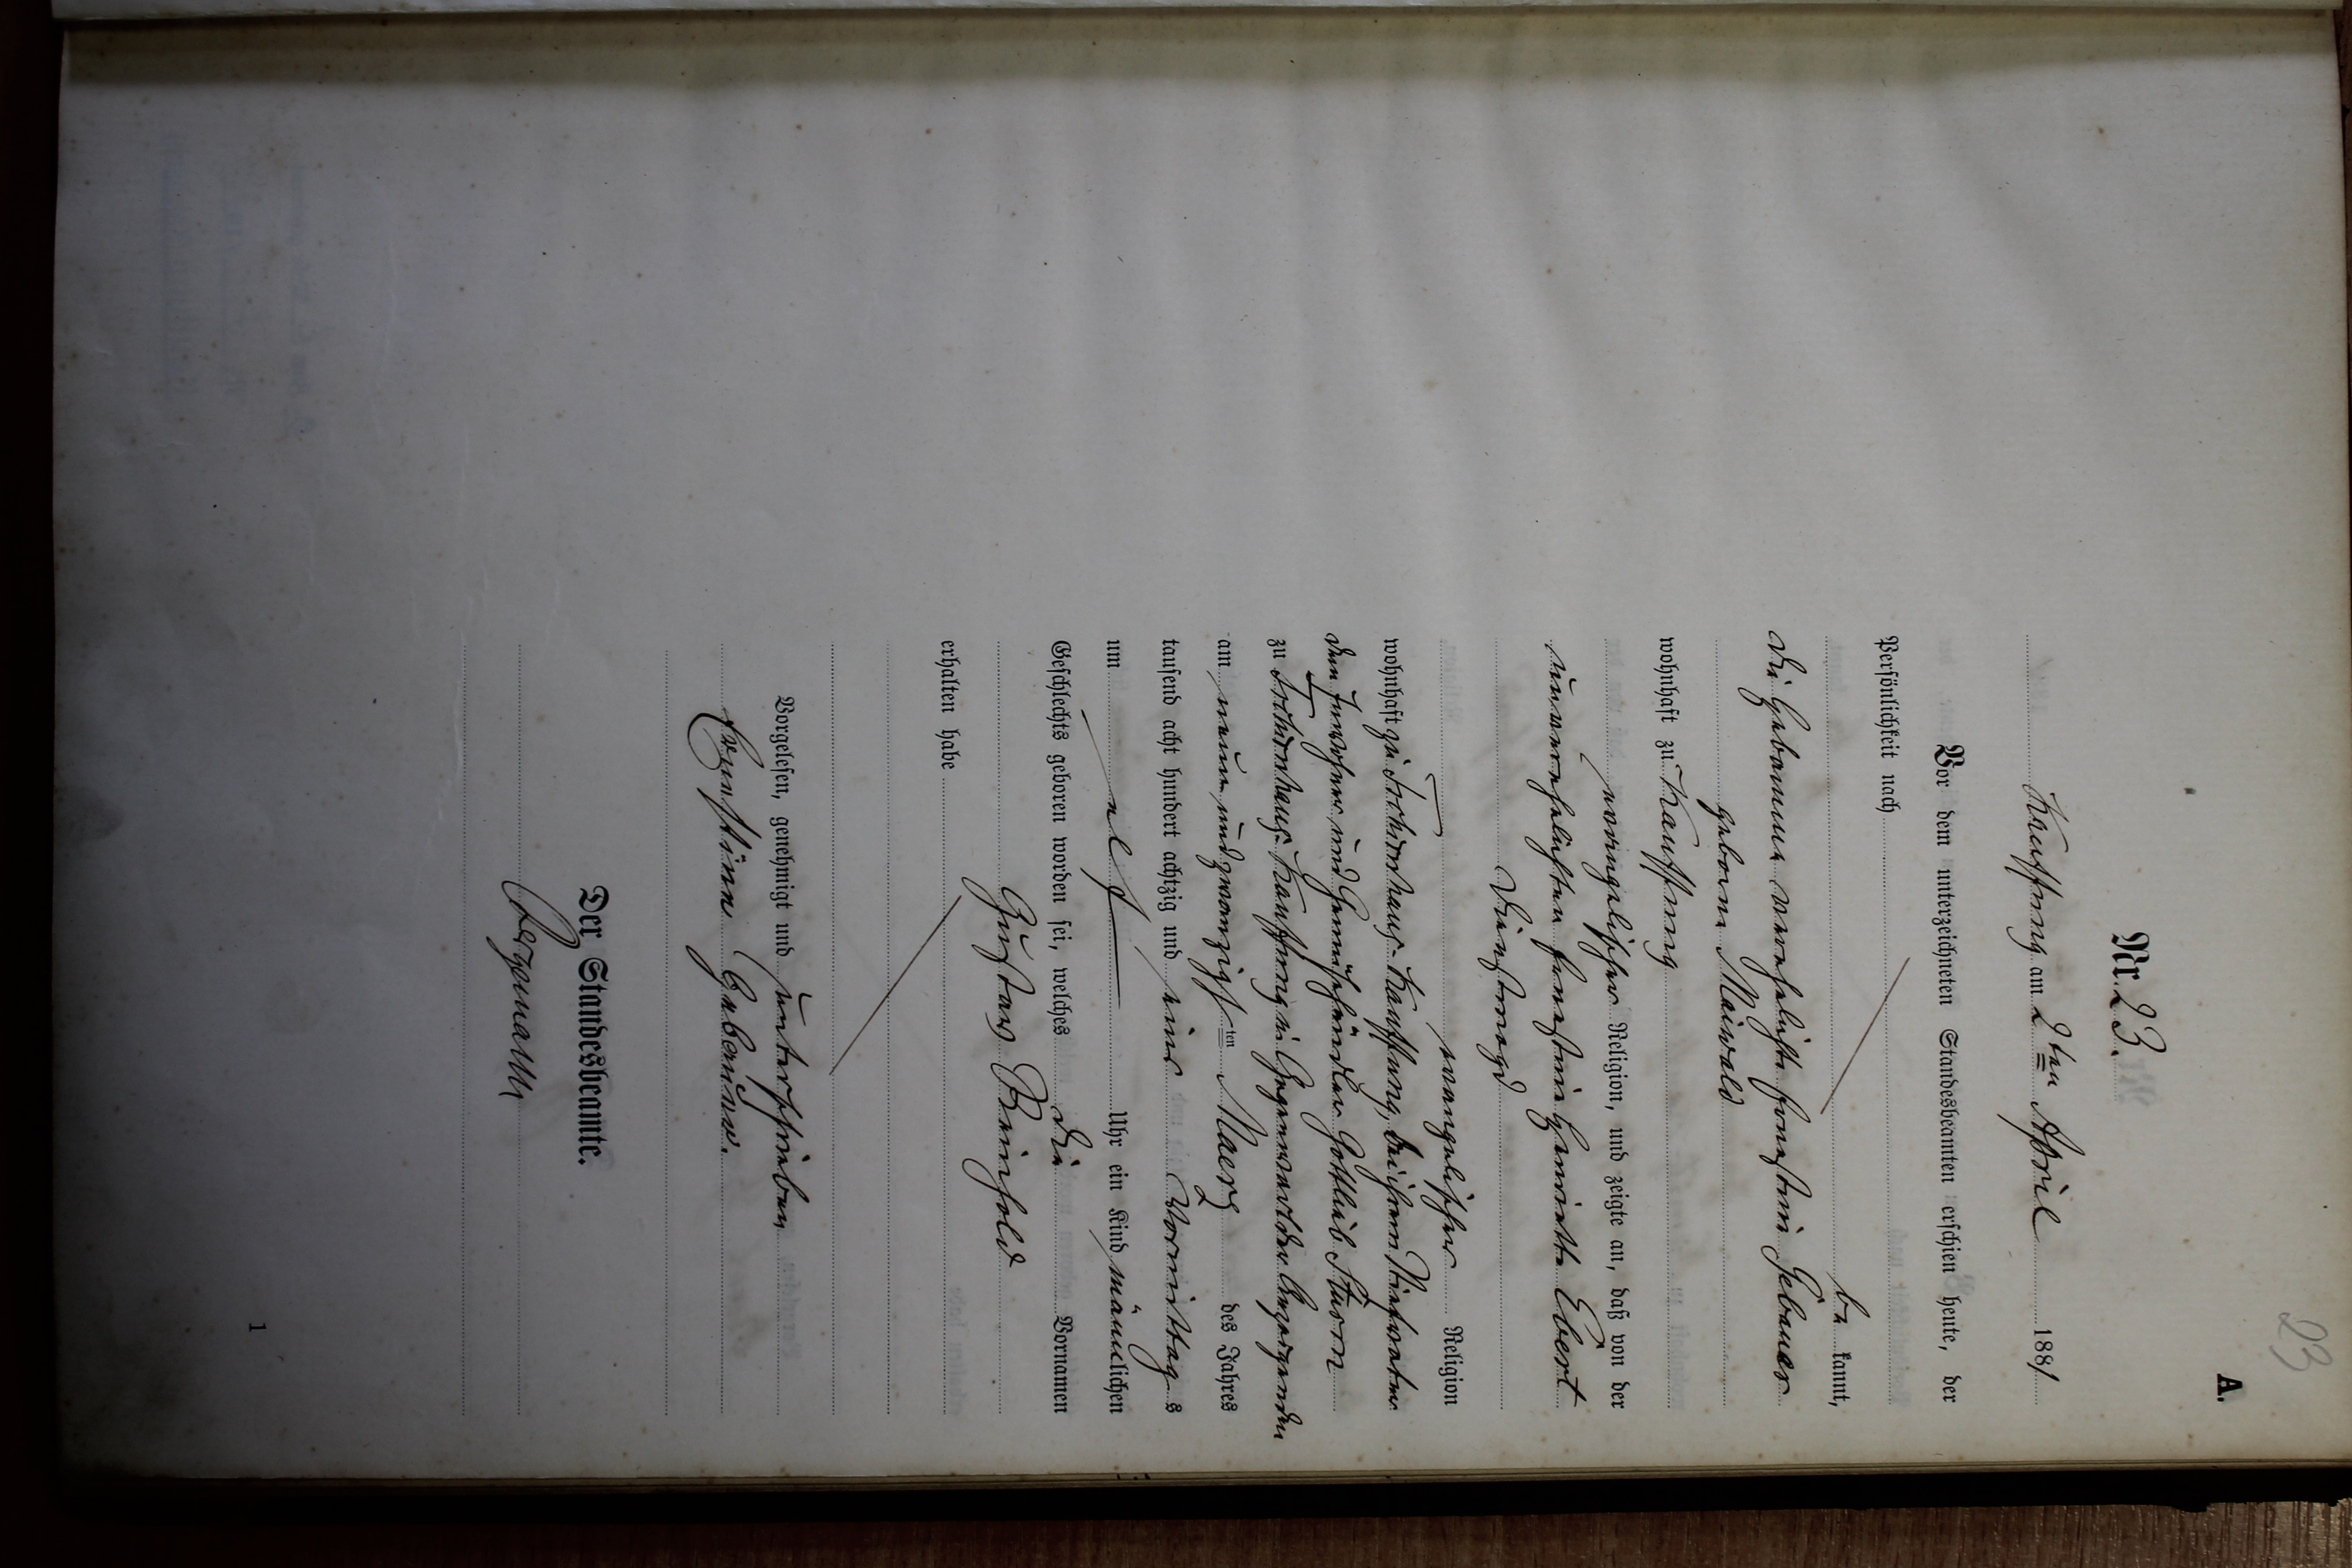 23
A.
Nr. 23.
Kauffung am 2ten April 1881
Vor dem unterzeichneten Standesbeamten erschien heute, der
Persönlichkeit nach
be kannt,
die Hebamme verehelichte Ernestine Gebauer
geborne Maiwald
wohnhaft zu Kauffung
evangelischer Religion, und zeigte an, daß von der
unverehelichten Ernestine Henriette Ebert
Dienstmagd
evangelischer Religion
wohnhaft zu Kauffung, bei ihrem Stiefvater
dem Inwohner und Gottlieb Sturm
zu Kauffung in Gegenwart der Anzeigenden
am neun und zwanzigsten Maerz des Jahres
tausend acht hundert achtzig und eins Vormittag s
um elf Uhr ein Kind männlichen
Geschlechts geboren worden sei, welches die Vornamen
Gustav Reinhold
erhalten habe
Vorgelesen, genehmigt und unterschrieben
Ernstine Gebauer.
Der Standesbeamte.
Bergmann
1